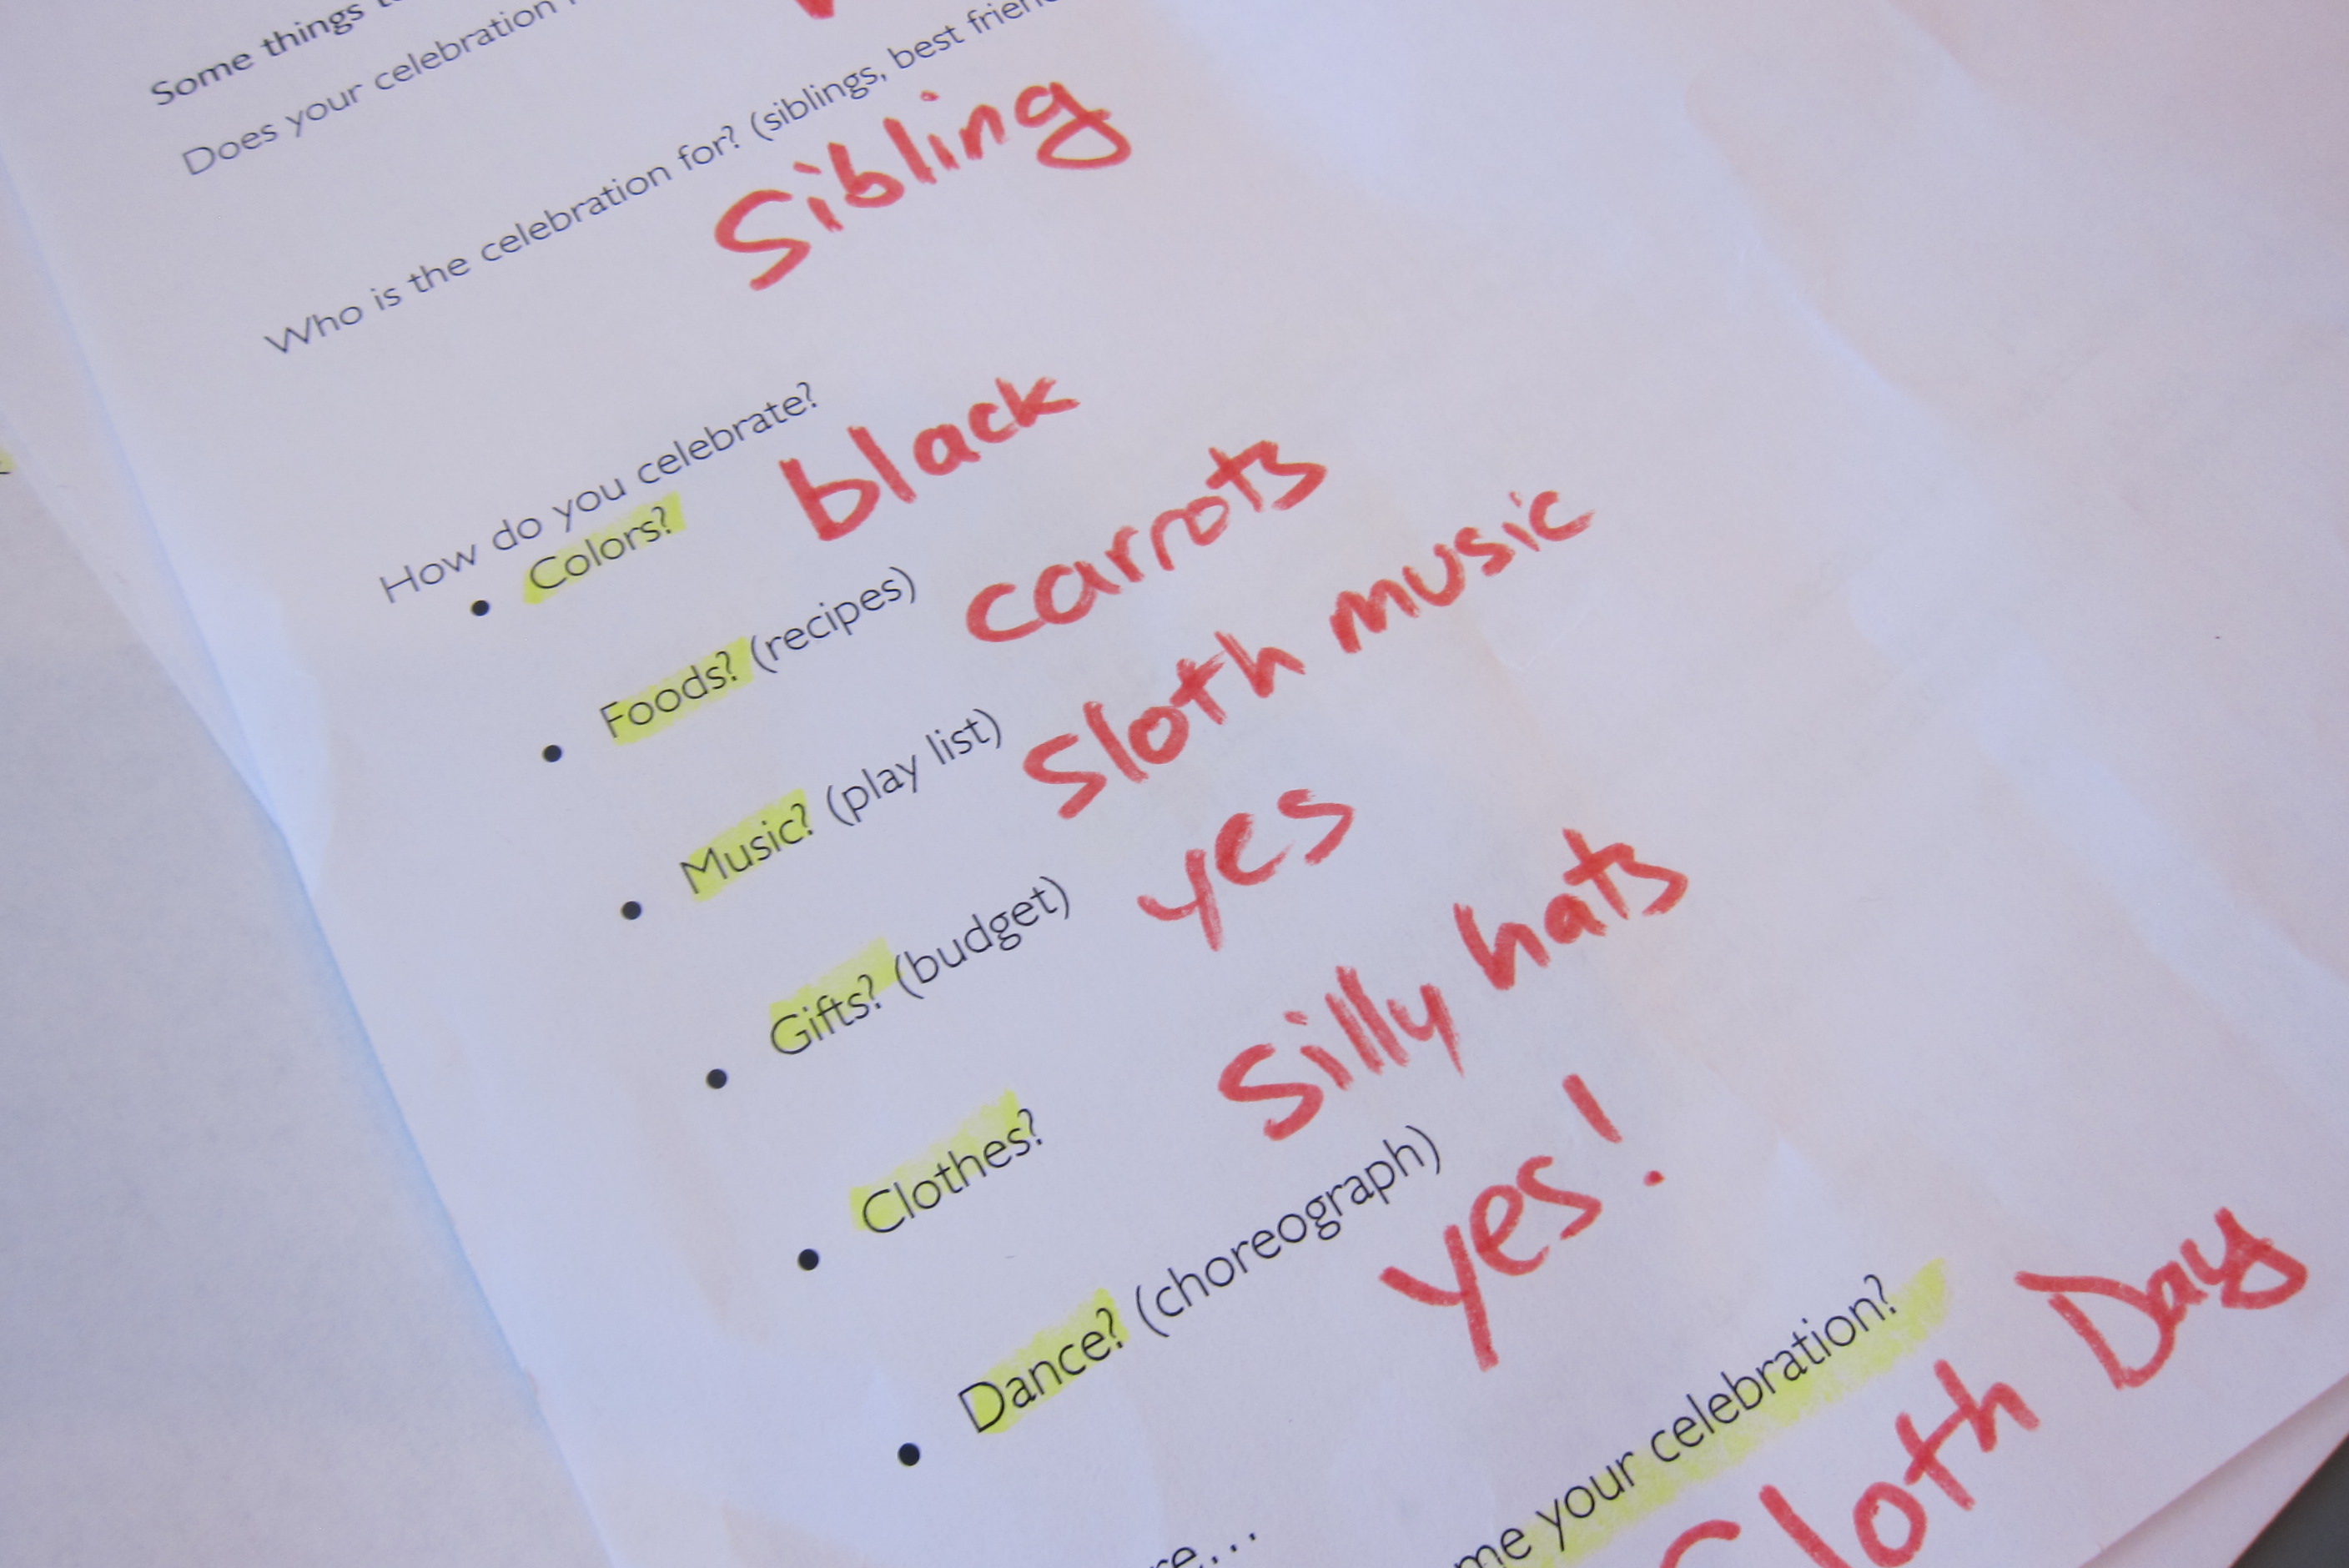 Some things
Does your celebration
Who is the celebration for? (siblings, best
Sibling
How do you celebrate?
• Colors? black
• Foods? (recipes) carrots
• Music? (play list) sloth music
• Gifts? (budget) yes
• Clothes? Silly hats
• Dance? (choreograph) yes!
your celebration?
Sloth Day